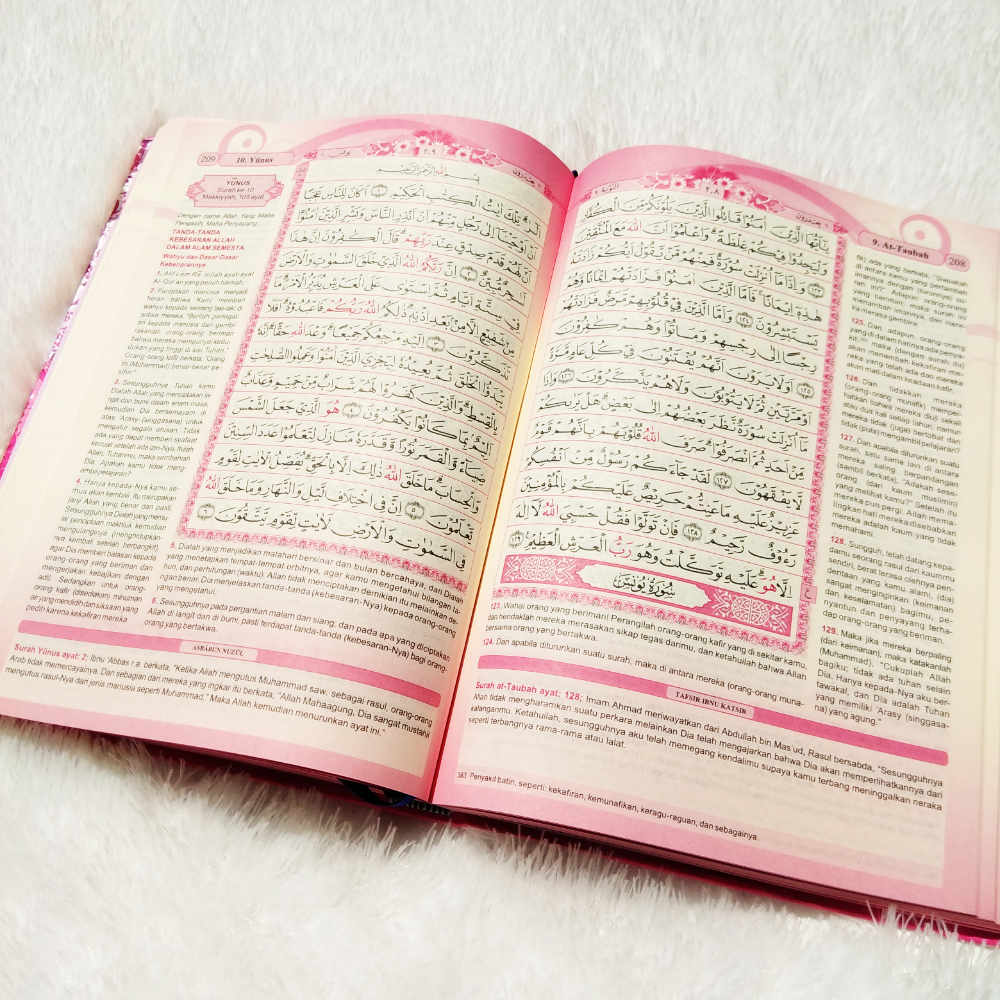 التوبة
9. At-Taubah 208
يٰٓاَيُّهَا الَّذِيْنَ اٰمَنُوْا قَاتِلُوا الَّذِيْنَ يَلُوْنَكُمْ مِّنَ الْكُفَّارِ
وَلْيَجِدُوْا فِيْكُمْ غِلْظَةً ۗ وَاعْلَمُوْٓا اَنَّ اللّٰهَ مَعَ الْمُتَّقِيْنَ
١٢٣ وَاِذَا مَآ اُنْزِلَتْ سُوْرَةٌ فَمِنْهُمْ مَّنْ يَّقُوْلُ اَيُّكُمْ زَادَتْهُ
هٰذِهٖٓ اِيْمَانًا ۚ فَاَمَّا الَّذِيْنَ اٰمَنُوْا فَزَادَتْهُمْ اِيْمَانًا وَّهُمْ
يَسْتَبْشِرُوْنَ ١٢٤ وَاَمَّا الَّذِيْنَ فِيْ قُلُوْبِهِمْ مَّرَضٌ فَزَادَتْهُمْ
رِجْسًا اِلٰى رِجْسِهِمْ وَمَاتُوْا وَهُمْ كٰفِرُوْنَ
١٢٥ اَوَلَا يَرَوْنَ اَنَّهُمْ يُفْتَنُوْنَ فِيْ كُلِّ عَامٍ مَّرَّةً
اَوْ مَرَّتَيْنِ ثُمَّ لَا يَتُوْبُوْنَ وَلَا هُمْ يَذَّكَّرُوْنَ ١٢٦ وَاِذَا
مَآ اُنْزِلَتْ سُوْرَةٌ نَّظَرَ بَعْضُهُمْ اِلٰى بَعْضٍ ۗ هَلْ يَرٰىكُمْ
مِّنْ اَحَدٍ ثُمَّ انْصَرَفُوْا ۗ صَرَفَ اللّٰهُ قُلُوْبَهُمْ بِاَنَّهُمْ قَوْمٌ
لَّا يَفْقَهُوْنَ ١٢٧ لَقَدْ جَاۤءَكُمْ رَسُوْلٌ مِّنْ اَنْفُسِكُمْ
عَزِيْزٌ عَلَيْهِ مَا عَنِتُّمْ حَرِيْصٌ عَلَيْكُمْ بِالْمُؤْمِنِيْنَ
رَءُوْفٌ رَّحِيْمٌ ١٢٨ فَاِنْ تَوَلَّوْا فَقُلْ حَسْبِيَ اللّٰهُ لَآ اِلٰهَ
اِلَّا هُوَ ۗ عَلَيْهِ تَوَكَّلْتُ وَهُوَ رَبُّ الْعَرْشِ الْعَظِيْمِ ١٢٩
سُوْرَةُ يُوْنُسَ
123. Wahai orang yang beriman! Perangilah orang-orang kafir yang di sekitar kamu,
dan hendaklah mereka merasakan sikap tegas darimu, dan ketahuilah bahwa Allah
bersama orang yang bertakwa.
124. Dan apabila diturunkan suatu surah, maka di antara mereka (orang-orang muna-
fik) ada yang berkata, "Siapakah
di antara kamu yang bertambah
imannya dengan (turunnya) su-
rah ini?" Adapun orang-orang
yang beriman, maka surah ini
menambah imannya, dan mere-
ka merasa gembira.
125. Dan adapun orang-orang
yang di dalam hatinya ada penya-
kit, maka (dengan surah itu)
akan menambah kekafiran me-
reka yang telah ada dan mereka
akan mati dalam keadaan kafir.
126. Dan tidakkah mereka
(orang-orang munafik) memper-
hatikan bahwa mereka diuji sekali
atau dua kali setiap tahun, namun
mereka tidak (juga) bertobat dan
tidak (pula) mengambil pelajaran?
127. Dan apabila diturunkan suatu
surah, satu sama lain di antara
mereka saling berpandangan
(sambil berkata), "Adakah sese-
orang dari (kaum muslimin)
yang melihat kamu?" Setelah itu
mereka pun pergi. Allah mema-
lingkan hati mereka disebabkan
mereka adalah kaum yang tidak
memahami.
128. Sungguh, telah datang kepa-
damu seorang rasul dari kaummu
sendiri, berat terasa olehnya pen-
deritaan yang kamu alami, (dia)
sangat menginginkan (keimanan
dan keselamatan) bagimu, pe-
nyantun dan penyayang terha-
dap orang-orang yang beriman.
129. Maka jika mereka berpaling
(dari keimanan), maka katakanlah
(Muhammad), "Cukuplah Allah
bagiku; tidak ada tuhan selain
Dia. Hanya kepada-Nya aku ber-
tawakal, dan Dia adalah Tuhan
yang memiliki 'Arasy (singgasa-
na) yang agung."
TAFSIR IBNU KATSIR
Surah at-Taubah ayat: 128; Imam Ahmad mewayatkan dari Abdullah bin Mas'ud, Rasul bersabda, "Sesungguhnya
Allah tidak mengharamkan suatu perkara melainkan Dia telah mengajarkan bahwa Dia akan memperlihatkannya dari
kalanganmu. Ketahuilah, sesungguhnya aku telah memegang kendalimu supaya kamu terbang meninggalkan neraka
seperti terbangnya rama-rama atau lalat.
383 Penyakit batin, seperti: kekafiran, kemunafikan, keragu-raguan, dan sebagainya.
209 10. Yūnus
يونس
٢٠٩
YŪNUS
Surah ke-10
Makkiyyah, 109 ayat
بِسْمِ اللّٰهِ الرَّحْمٰنِ الرَّحِيْمِ
الۤرٰ ۗ تِلْكَ اٰيٰتُ الْكِتٰبِ الْحَكِيْمِ ١ اَكَانَ لِلنَّاسِ عَجَبًا
اَنْ اَوْحَيْنَآ اِلٰى رَجُلٍ مِّنْهُمْ اَنْ اَنْذِرِ النَّاسَ وَبَشِّرِ الَّذِيْنَ اٰمَنُوْٓا
اَنَّ لَهُمْ قَدَمَ صِدْقٍ عِنْدَ رَبِّهِمْ ۗ قَالَ الْكٰفِرُوْنَ اِنَّ هٰذَا
لَسٰحِرٌ مُّبِيْنٌ ٢ اِنَّ رَبَّكُمُ اللّٰهُ الَّذِيْ خَلَقَ السَّمٰوٰتِ وَالْاَرْضَ
فِيْ سِتَّةِ اَيَّامٍ ثُمَّ اسْتَوٰى عَلَى الْعَرْشِ يُدَبِّرُ الْاَمْرَ ۗ مَا
مِنْ شَفِيْعٍ اِلَّا مِنْۢ بَعْدِ اِذْنِهٖ ۗ ذٰلِكُمُ اللّٰهُ رَبُّكُمْ فَاعْبُدُوْهُ ۗ اَفَلَا
تَذَكَّرُوْنَ ٣ اِلَيْهِ مَرْجِعُكُمْ جَمِيْعًا ۗ وَعْدَ اللّٰهِ حَقًّا ۗ اِنَّهٗ
يَبْدَؤُا الْخَلْقَ ثُمَّ يُعِيْدُهٗ لِيَجْزِيَ الَّذِيْنَ اٰمَنُوْا وَعَمِلُوا الصّٰلِحٰتِ
بِالْقِسْطِ ۗ وَالَّذِيْنَ كَفَرُوْا لَهُمْ شَرَابٌ مِّنْ حَمِيْمٍ وَّعَذَابٌ
اَلِيْمٌۢ بِمَا كَانُوْا يَكْفُرُوْنَ ٤ هُوَ الَّذِيْ جَعَلَ الشَّمْسَ
ضِيَاۤءً وَّالْقَمَرَ نُوْرًا وَّقَدَّرَهٗ مَنَازِلَ لِتَعْلَمُوْا عَدَدَ السِّنِيْنَ
وَالْحِسَابَ ۗ مَا خَلَقَ اللّٰهُ ذٰلِكَ اِلَّا بِالْحَقِّ ۗ يُفَصِّلُ الْاٰيٰتِ لِقَوْمٍ
يَّعْلَمُوْنَ ٥ اِنَّ فِى اخْتِلَافِ الَّيْلِ وَالنَّهَارِ وَمَا خَلَقَ اللّٰهُ
فِى السَّمٰوٰتِ وَالْاَرْضِ لَاٰيٰتٍ لِّقَوْمٍ يَّتَّقُوْنَ ٦
Dengan nama Allah Yang Maha
Pengasih, Maha Penyayang.
TANDA-TANDA
KEBESARAN ALLAH
DALAM ALAM SEMESTA
Wahyu dan Dasar-Dasar
Kebenarannya
1. Alif Lām Rā. Inilah ayat-ayat
Al-Qur'an yang penuh hikmah.
2. Pantaskah manusia menjadi
heran bahwa Kami memberi
wahyu kepada seorang laki-laki di
antara mereka, "Berilah peringat-
an kepada manusia dan gembi-
rakanlah orang-orang beriman
bahwa mereka mempunyai kedu-
dukan yang tinggi di sisi Tuhan."
Orang-orang kafir berkata, "Orang
ini (Muhammad) benar-benar pe-
sihir."
3. Sesungguhnya Tuhan kamu
Dialah Allah yang menciptakan la-
ngit dan bumi dalam enam masa,
kemudian Dia bersemayam di
atas 'Arasy (singgasana) untuk
mengatur segala urusan. Tidak
ada yang dapat memberi syafaat
kecuali setelah ada izin-Nya. Itulah
Allah, Tuhanmu, maka sembahlah
Dia. Apakah kamu tidak meng-
ambil pelajaran?
4. Hanya kepada-Nya kamu se-
mua akan kembali. Itu merupakan
janji Allah yang benar dan pasti.
Sesungguhnya Dialah yang memu-
lai penciptaan makhluk kemudian
mengulanginya (menghidupkan-
nya kembali setelah berbangkit),
agar Dia memberi balasan kepada
orang-orang yang beriman dan
mengerjakan kebajikan dengan
adil. Sedangkan untuk orang-
orang kafir (disediakan) minuman
air yang mendidih dan siksaan yang
pedih karena kekafiran mereka.
5. Dialah yang menjadikan matahari bersinar dan bulan bercahaya, dan Dialah
yang menetapkan tempat-tempat orbitnya, agar kamu mengetahui bilangan ta-
hun, dan perhitungan (waktu). Allah tidak menciptakan demikian itu melainkan de-
ngan benar. Dia menjelaskan tanda-tanda (kebesaran-Nya) kepada orang-orang
yang mengetahui.
6. Sesungguhnya pada pergantian malam dan siang, dan pada apa yang diciptakan
Allah di langit dan di bumi, pasti terdapat tanda-tanda (kebesaran-Nya) bagi orang-
orang yang bertakwa.
ASBĀBUN NUZŪL
Surah Yūnus ayat: 2; Ibnu 'Abbas r.a. berkata, "Ketika Allah mengutus Muhammad saw. sebagai rasul, orang-orang
Arab tidak memercayainya. Dan sebagian dari mereka yang ingkar itu berkata, "Allah Mahaagung, Dia sangat mustahil
mengutus rasul-Nya dari jenis manusia seperti Muhammad." Maka Allah kemudian menurunkan ayat ini."